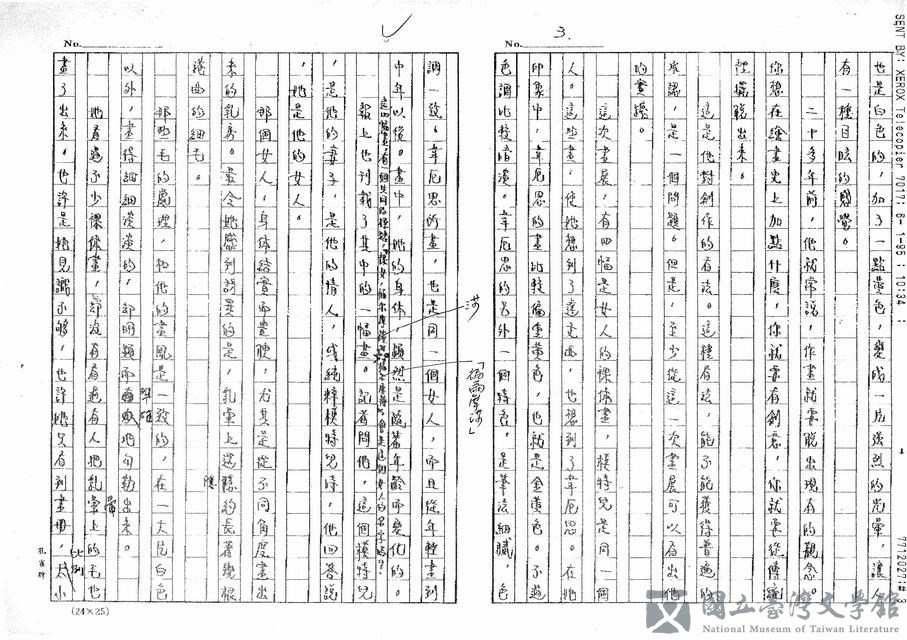 SENT BY: XEROX Telecopier 7017; 8- 1-95 ; 10:34 ;
7712027;# 3
3
No.
也是白色的，加了一點黃色，變成一片強烈的光暈，讓人
有一種目眩的感覺。
二十多年前，他就常說，作畫就要脫出現有的觀念。
你想在繪畫史上加點什麼，你就要有創意，你就要從傳統
裡擺脫出來。
這是他對創作的看法。這種看法，能不能獲得普遍的
承認，是一個問題。但是，至少從這一次畫展可以看出他
的實證。
這次畫展，有四幅是女人的裸體畫，模特兒是同一個
人。這些畫，使她想到了達文西，也想到了韋厄思。在她
印象中，韋厄思的畫比較偏重黃色，也就是金黃色。不過
色調比較暗淡。韋厄思的另外一個特色，是筆法細膩，色
No.
調一致。韋厄思所畫，也是同一個女人，而且從年輕畫到
中年以後。畫中，她的身體，顯然是隨著年齡而變化的。
報上也刊載了其中的一幅畫。記者問他，這個模特兒
是他的妻子，是他的情人，或純粹模特兒時，他回答說
，她是他的女人。
那個女人，身體結實而豐腴，尤其是從不同角度畫出
來的乳房。最令她感到訝異的是，乳暈上還隱約長著幾根
捲曲的細毛。
那些毛的處理，和他的畫風是一致的，在一大片白色
以外，畫得細細淡淡的，却明顯而
地勾勒出來。
她看過不少裸體畫，却沒有看過有人把乳暈上的毛也
畫了出來。也許是她見識不夠，也許她只看到畫冊，太小
(24×25)
國立臺灣文學館
National Museum of Taiwan Literature